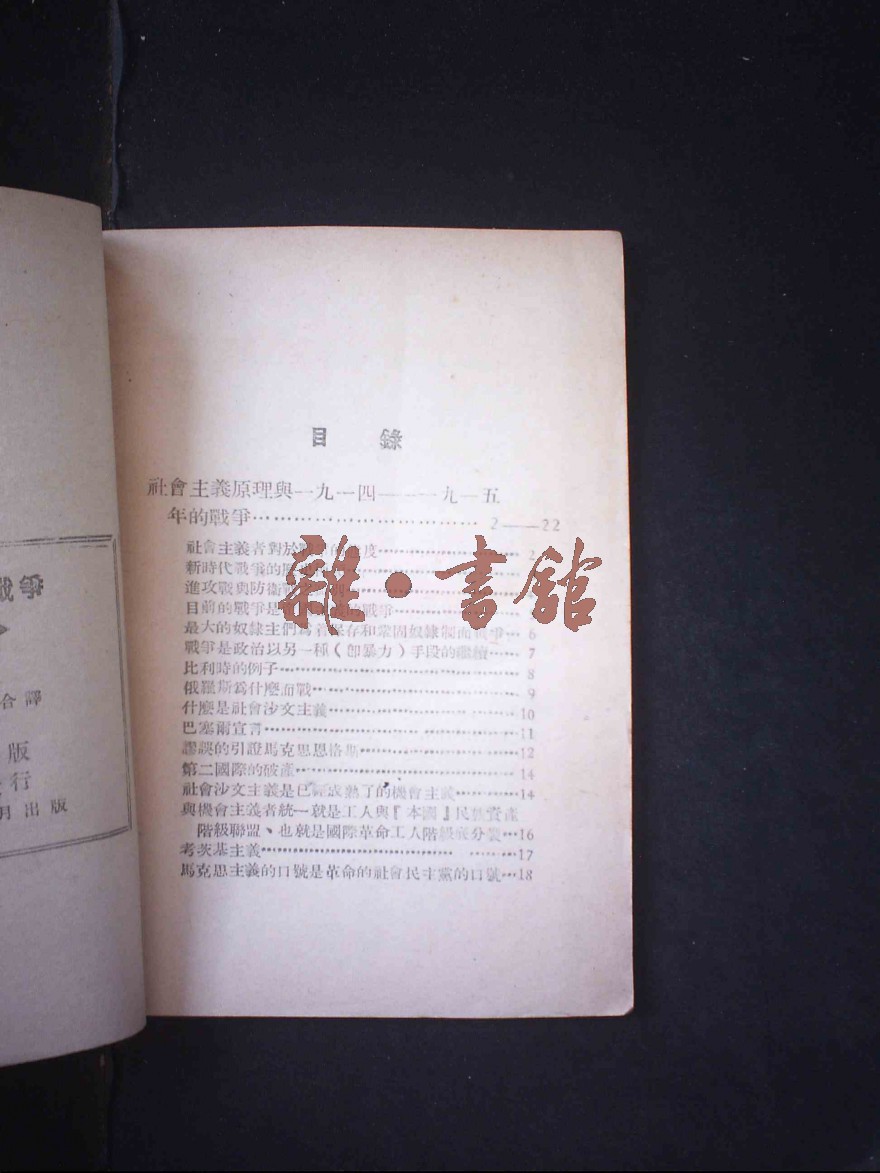 目 錄
社會主義原理與一九一四——一九一五
年的戰爭………………………… 2——22
社會主義者對於戰爭的態度………………
新時代戰爭的
進攻戰與防衛戰
目前的戰爭是 的戰爭
最大的奴隸主們爲着保存和鞏固奴隸制而戰爭…6
戰爭是政治以另一種（即暴力）手段的繼續…7
比利時的例子………………8
俄羅斯爲什麼而戰………………9
什麼是社會沙文主義………………10
巴塞爾宣言………………11
謬誤的引證馬克思恩格斯………………12
第二國際的破產………………14
社會沙文主義是已經成熟了的機會主義………14
與機會主義者統一就是工人與『本國』民族資產
階級聯盟、也就是國際革命工人階級底分裂…16
考茨基主義………………17
馬克思主義的口號是革命的社會民主黨的口號…18
雜·書館
戰爭
合譯
版
行
月出版